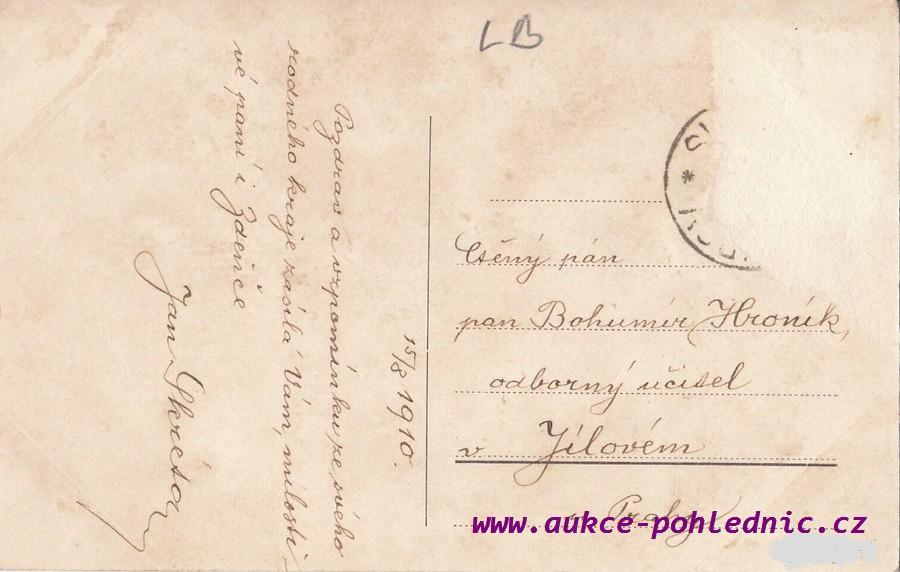 LB
Pozdrav a vzpomínku ze svého
rodného kraje zasílá Vám, milosti-
vé paní i Zdeňce
Jan Skréta
15/8 1910.
Ctěný pán
pan Bohumír Hroník,
odborný učitel
v Jílovém
u Prahy
www.aukce-pohlednic.cz